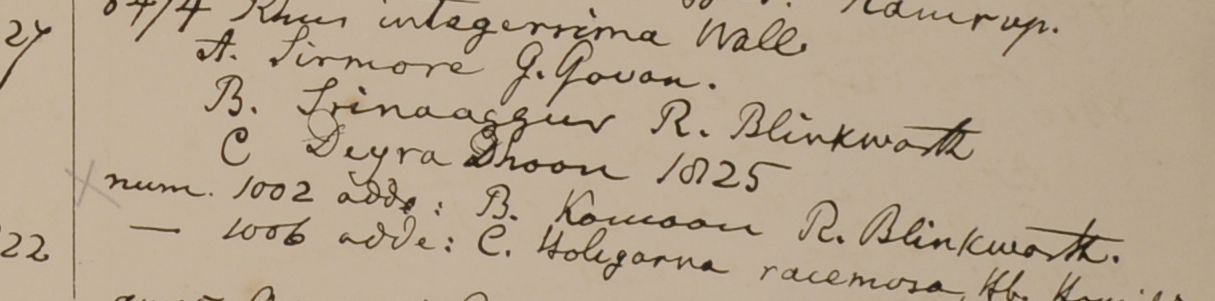 8474 Rhus integerrima Wall.
27
A. Sirmore G. Govan.
B. Srinaaggur R. Blinkworth
C Deyra Dhoon 1825
num. 1002 adde: B. Kamaon R. Blinkworth.
22
— 1006 adde: C. Holigarna racemosa, Hb.